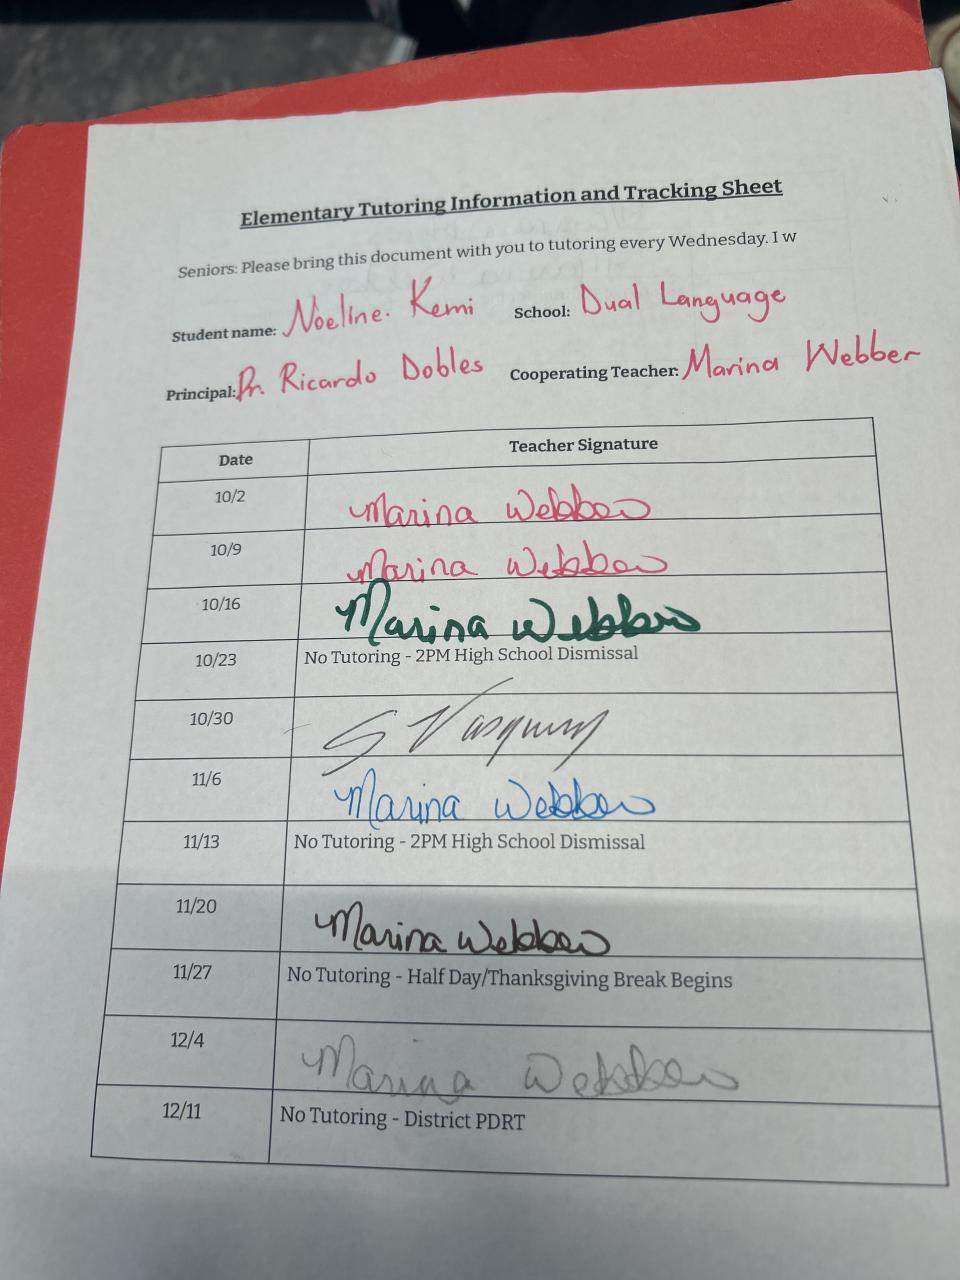 Elementary Tutoring Information and Tracking Sheet
Seniors: Please bring this document with you to tutoring every Wednesday. I w
Student name: Noeline. Kemi School: Dual Language
Principal: Dr. Ricardo Dobles Cooperating Teacher: Marina Webber
Date Teacher Signature
10/2 Marina Webber
10/9 Marina Webber
10/16 Marina Webber
10/23 No Tutoring - 2PM High School Dismissal
10/30 S Vasquez
11/6 Marina Webber
11/13 No Tutoring - 2PM High School Dismissal
11/20 Marina Webber
11/27 No Tutoring - Half Day/Thanksgiving Break Begins
12/4 Marina Webber
12/11 No Tutoring - District PDRT